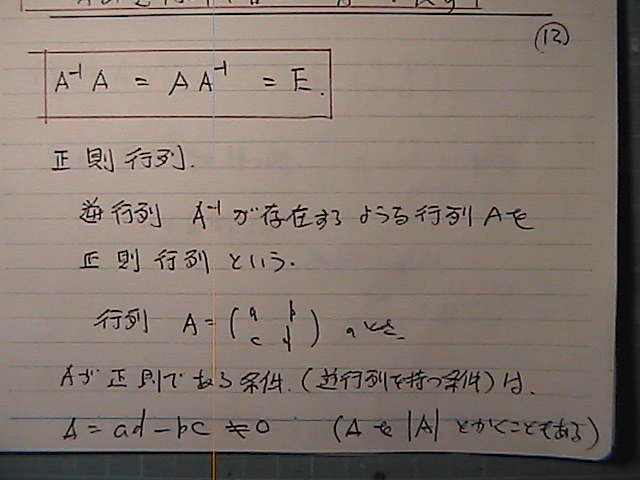 ⑫
A⁻¹A = AA⁻¹ = E.
正則行列.
逆行列 A⁻¹が存在するような行列Aを
正則行列という.
行列 A = ( a b
c d ) のとき.
Aが正則である条件.(逆行列を持つ条件)は、
Δ = ad - bc ≠ 0 (Δを|A|とかくこともある)